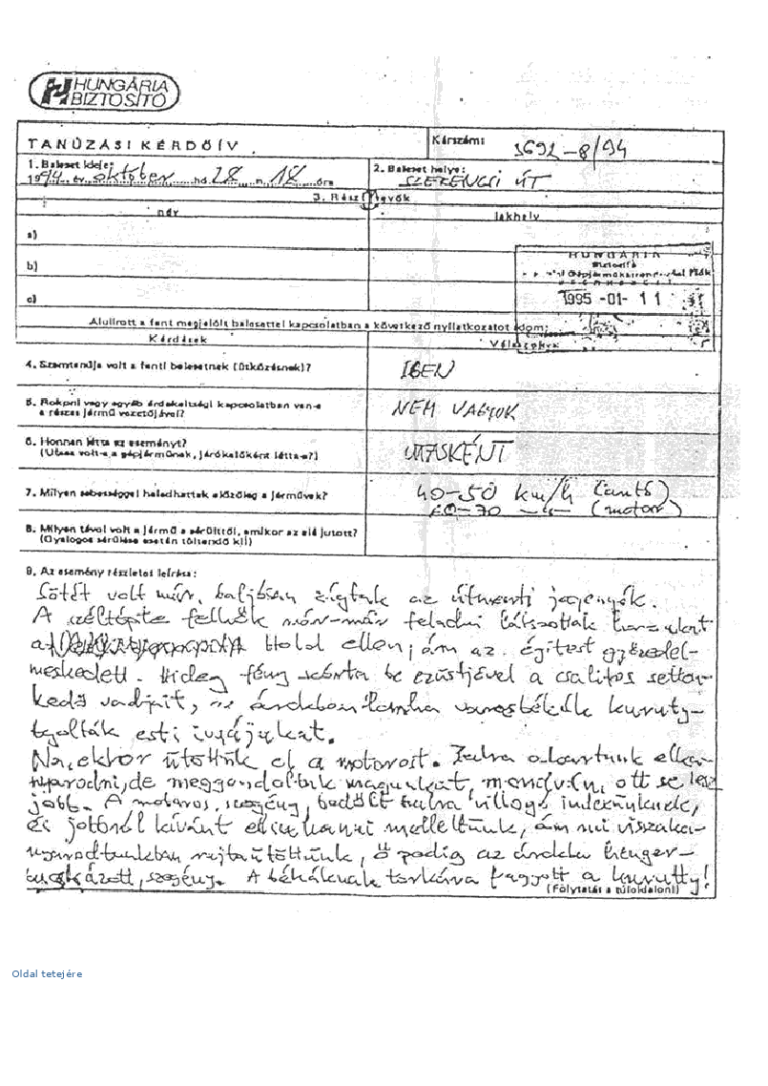 HUNGÁRIA
BIZTOSÍTÓ
TANÚZÁSI KÉRDŐÍV
Kárszám: 3692-8/94
1. Baleset ideje:
1994 év október hó 28 n. 18 óra
2. Baleset helye:
SZERENCSI ÚT
3. Résztvevők
név
lakhely
a)
b)
c)
HUNGÁRIA
Biztosító
1995 -01- 11
Alulírott a fent megjelölt balesettel kapcsolatban a következő nyilatkozatot adom:
Kérdések
Válaszok
4. Szemtanúja volt a fenti balesetnek (ütközésnek)?
IGEN
5. Rokoni vagy egyéb érdekeltségi kapcsolatban van-e
a részes jármű vezetőjével?
NEM VAGYOK
6. Honnan látta az eseményt?
(Utasa volt-e a gépjárműnek, járókelőként látta-e?)
UTASKÉNT
7. Milyen sebességgel haladhattak előzőleg a járművek?
40-50 km/h (autó)
60-70 -"- (motor)
8. Milyen távol volt a jármű a sérülttől, amikor az elé jutott?
(Gyalogos sérülése esetén töltendő ki!)
9. Az esemény részletes leírása:
Sötét volt már, baljósan zúgtak az útmenti jegenyék.
A széltépte felhők már-már feladni látszottak harcukat
a Hold ellen, ám az égitest győzedel-
meskedett. Hideg fény szórta be ezüstjével a csalitos setten-
kedő vadjait, az árokban lomha varasbékák kuruty-
tyolták esti imájukat.
Na, ekkor ütöttük el a motorost. Jobbra akartunk
kanyarodni, de meggondoltuk magunkat, mondván, ott se lesz
jobb. A motoros, szegény, bedőlt balra villogó indexünknek,
és jobbról kívánt elsuhanni mellettünk, ám mi visszaka-
nyarodtunkban rajtaütöttünk, ő pedig az árokba henger-
buckázott, szegény. A békáknak torkára fagyott a kurutty!
(Folytatás a túloldalon!)
Oldal tetejére